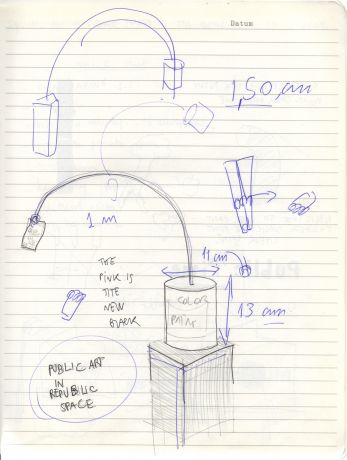 Datum
1,50 cm
1 m
11 cm
THE
PINK IS
THE
NEW
BLACK
COLOR
PAINT
13 cm
PUBLIC ART
IN
REPUBLIC
SPACE